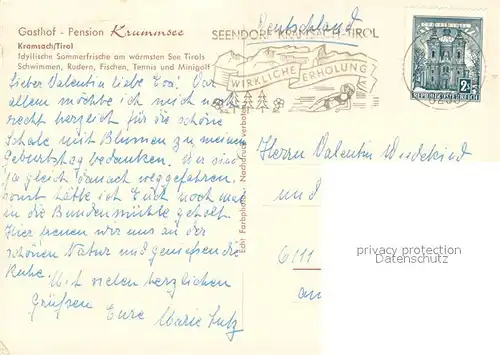 Gasthof - Pension Krummsee
Kramsach/Tirol
Idyllische Sommerfrische am wärmsten See Tirols
Schwimmen, Rudern, Fischen, Tennis und Minigolf
Deutschland
SEENDORF KRAMSACH TIROL
WIRKLICHE ERHOLUNG
2.40
REPUBLIK ÖSTERREICH
Lieber Valentin liebe Eva! Vor
allem möchte ich mich noch
recht herzlich für die schöne
Schale mit Blumen zu meinem
Geburtstag bedanken. Wir sind
ja gleich danach weggefahren,
sonst hätte ich Euch noch mal
in die Bundenmühle geholt.
Hier freuen wir uns an der
schönen Natur und genießen die
Ruhe.
Mit vielen herzlichen
Grüßen
Eure Marie Lutz
Echt Farbphoto. Nachdruck verboten
Herrn Valentin
und
6111
an
privacy protection
Datenschutz